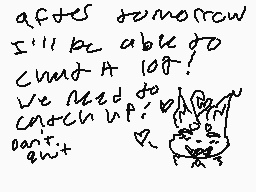 after tomorrow
I'll be able to
chat A lot!
we need to
catch up!
Dan't
quit